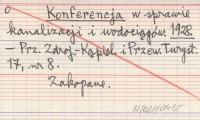 Konferencja w sprawie
kanalizacji i wodociągów. 1928
– Prz. Zdroj.-Kąpiel. i Przew. Turyst.
17, nr 8.
Zakopane.